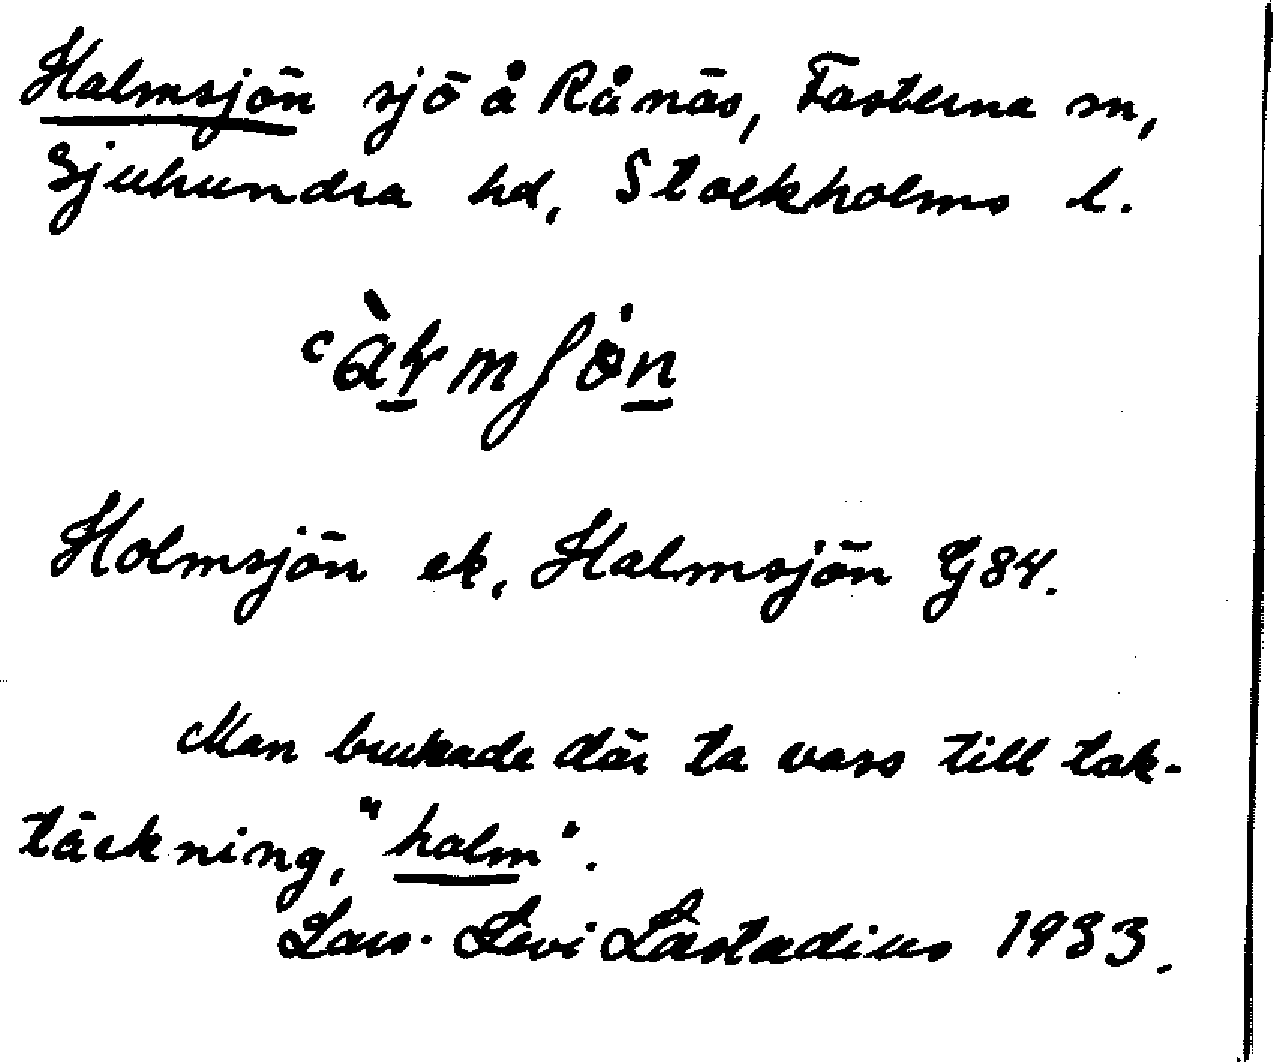 Halmsjön sjö å Rånäs, Fasterna sn,
Sjuhundra hd, Stockholms l.
Holmsjön ek, Halmsjön G84.
Man brukade där ta vass till tak-
täckning, "halm".
Lars-Levi Låstadius 1933.